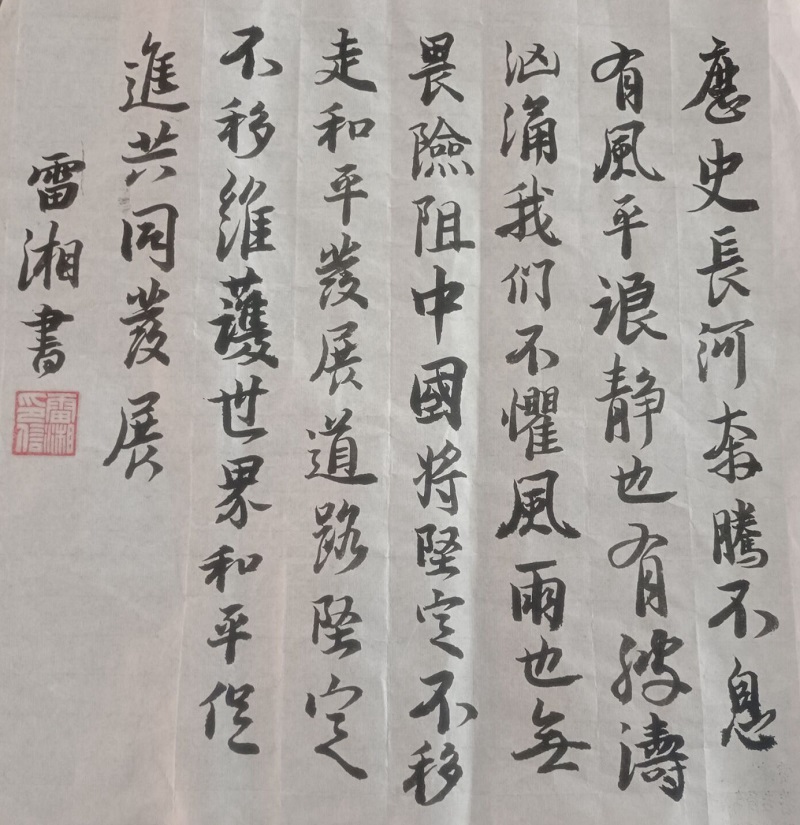 應史長河奔騰不息
有風平浪静也有波濤
汹涌我们不懼風雨也無
畏險阻中國将堅定不移
走和平發展道路堅定
不移維護世界和平促
進共同發展
雷湘書
雷湘之信